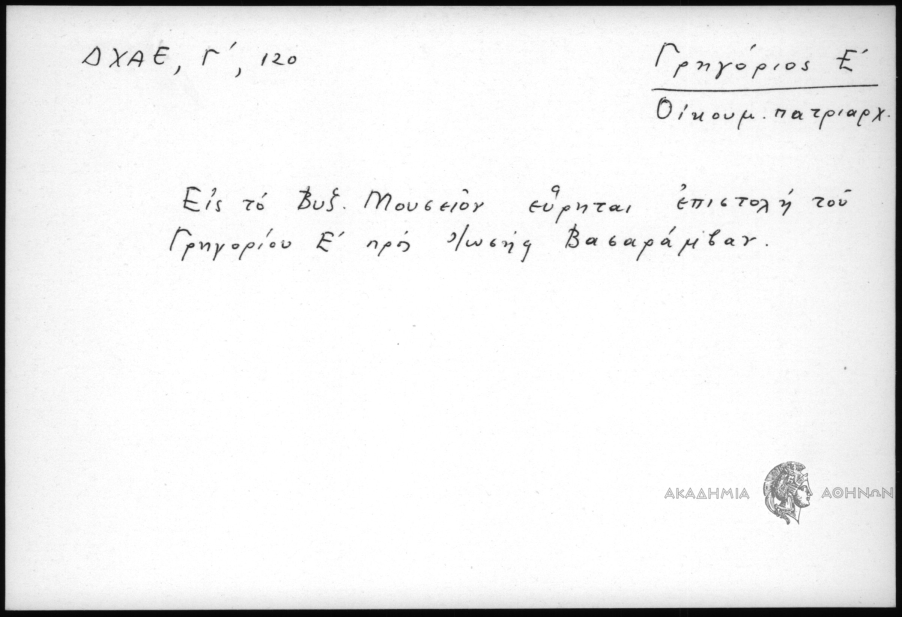 ΔΧΑΕ, Γ΄, 120
Γρηγόριος Ε΄
Οἰκουμ. πατριαρχ.
Εἰς τό Βυζ. Μουσεῖον εὕρηται ἐπιστολή τοῦ
Γρηγορίου Ε΄ πρός Ἰωσήφ Βασαράμβαν.
ΑΚΑΔΗΜΙΑ ΑΘΗΝΩΝ